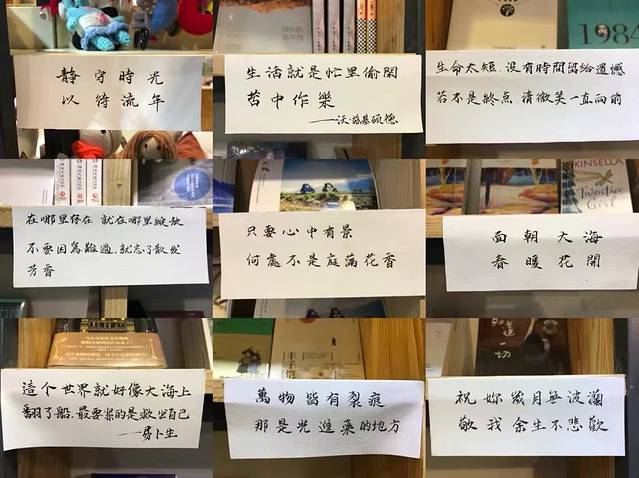 静守時光
以待流年
生活就是忙里偷閒
苦中作樂
——沃兹基硕德
1984
生命太短.没有時間留給遺憾
若不是終点 請微笑一直向前
在哪里存在 就在哪里綻放
不要因為難過.就忘了散发
芳香
只要心中有景
何處不是庭滿花香
KINSELLA
Twenties
Girl
面朝大海
春暖花開
這个世界就好像大海上
翻了船.最要紧的是救出自己
——易卜生
萬物皆有裂痕
那是光進來的地方
一切
祝妳歲月無波瀾
敬我余生不悲歡